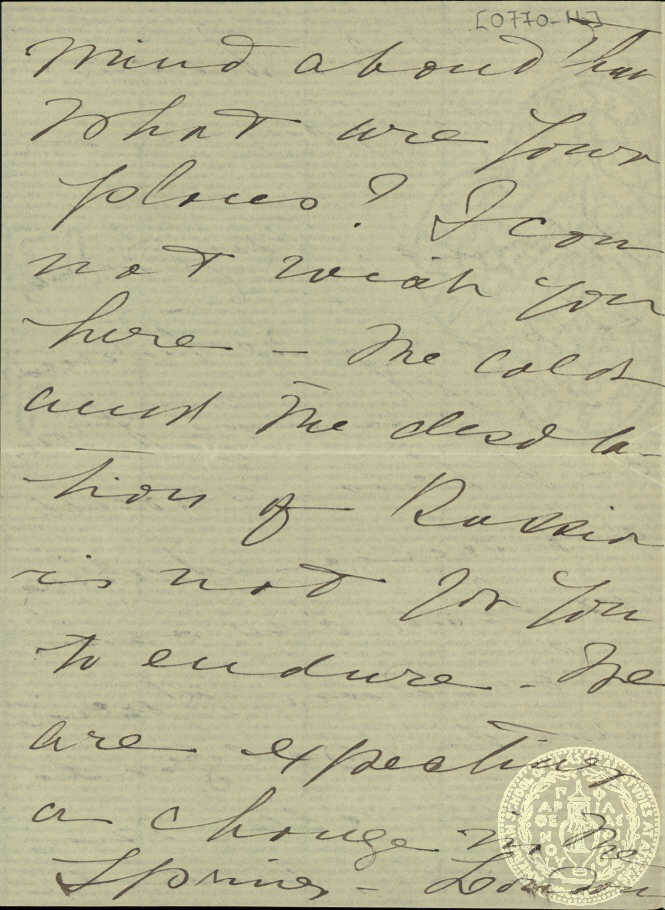 [0770-4]
mind about him
What are your
plans? I can
not wish you
here - The cold
and the desola-
tion of Russia
is not for you
to endure - We
are expecting
a change in the
Spring - London